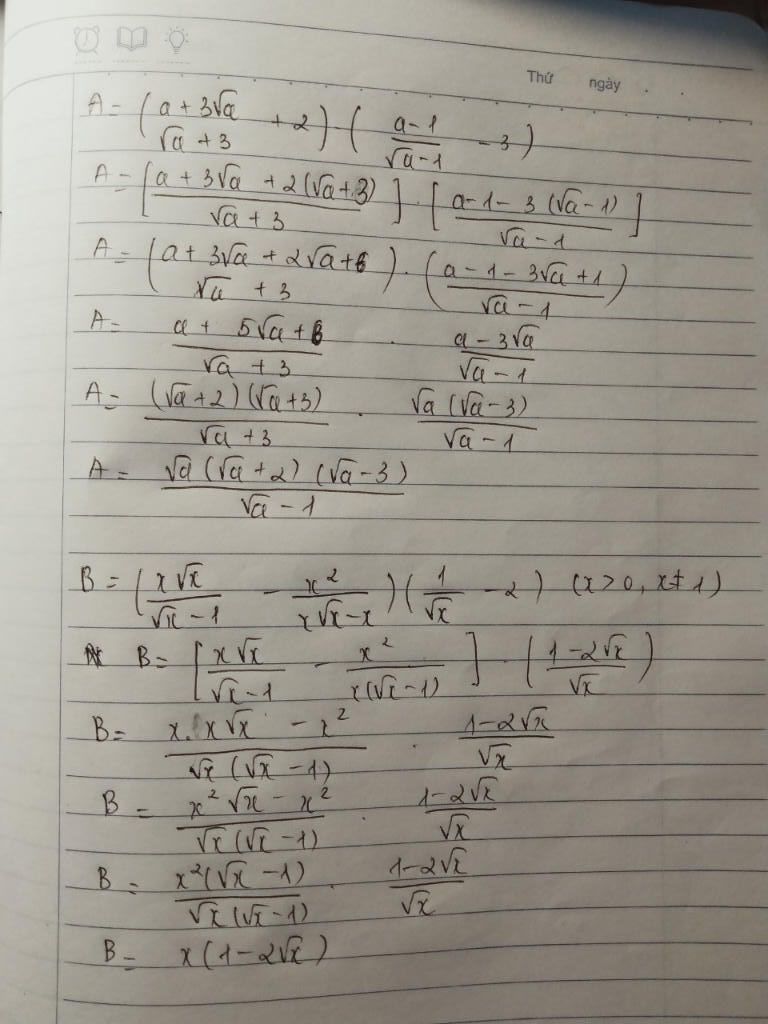 Thứ ngày . .
A = ( (a + 3√a)/(√a + 3) + 2 ) · ( (a - 1)/(√a - 1) - 3 )
A = [ (a + 3√a + 2(√a + 3))/(√a + 3) ] · [ (a - 1 - 3(√a - 1))/(√a - 1) ]
A = ( (a + 3√a + 2√a + 6)/(√a + 3) ) · ( (a - 1 - 3√a + 1)/(√a - 1) )
A = (a + 5√a + 6)/(√a + 3) · (a - 3√a)/(√a - 1)
A = ((√a + 2)(√a + 3))/(√a + 3) · (√a(√a - 3))/(√a - 1)
A = (√a(√a + 2)(√a - 3))/(√a - 1)
B = ( (x√x)/(√x - 1) - x²/(x√x - x) ) ( 1/√x - 2 ) (x > 0, x ≠ 1)
B = [ (x√x)/(√x - 1) - x²/(x(√x - 1)) ] · ( (1 - 2√x)/√x )
B = (x. x√x - x²)/(√x(√x - 1)) · (1 - 2√x)/√x
B = (x²√x - x²)/(√x(√x - 1)) · (1 - 2√x)/√x
B = (x²(√x - 1))/(√x(√x - 1)) · (1 - 2√x)/√x
B = x(1 - 2√x)